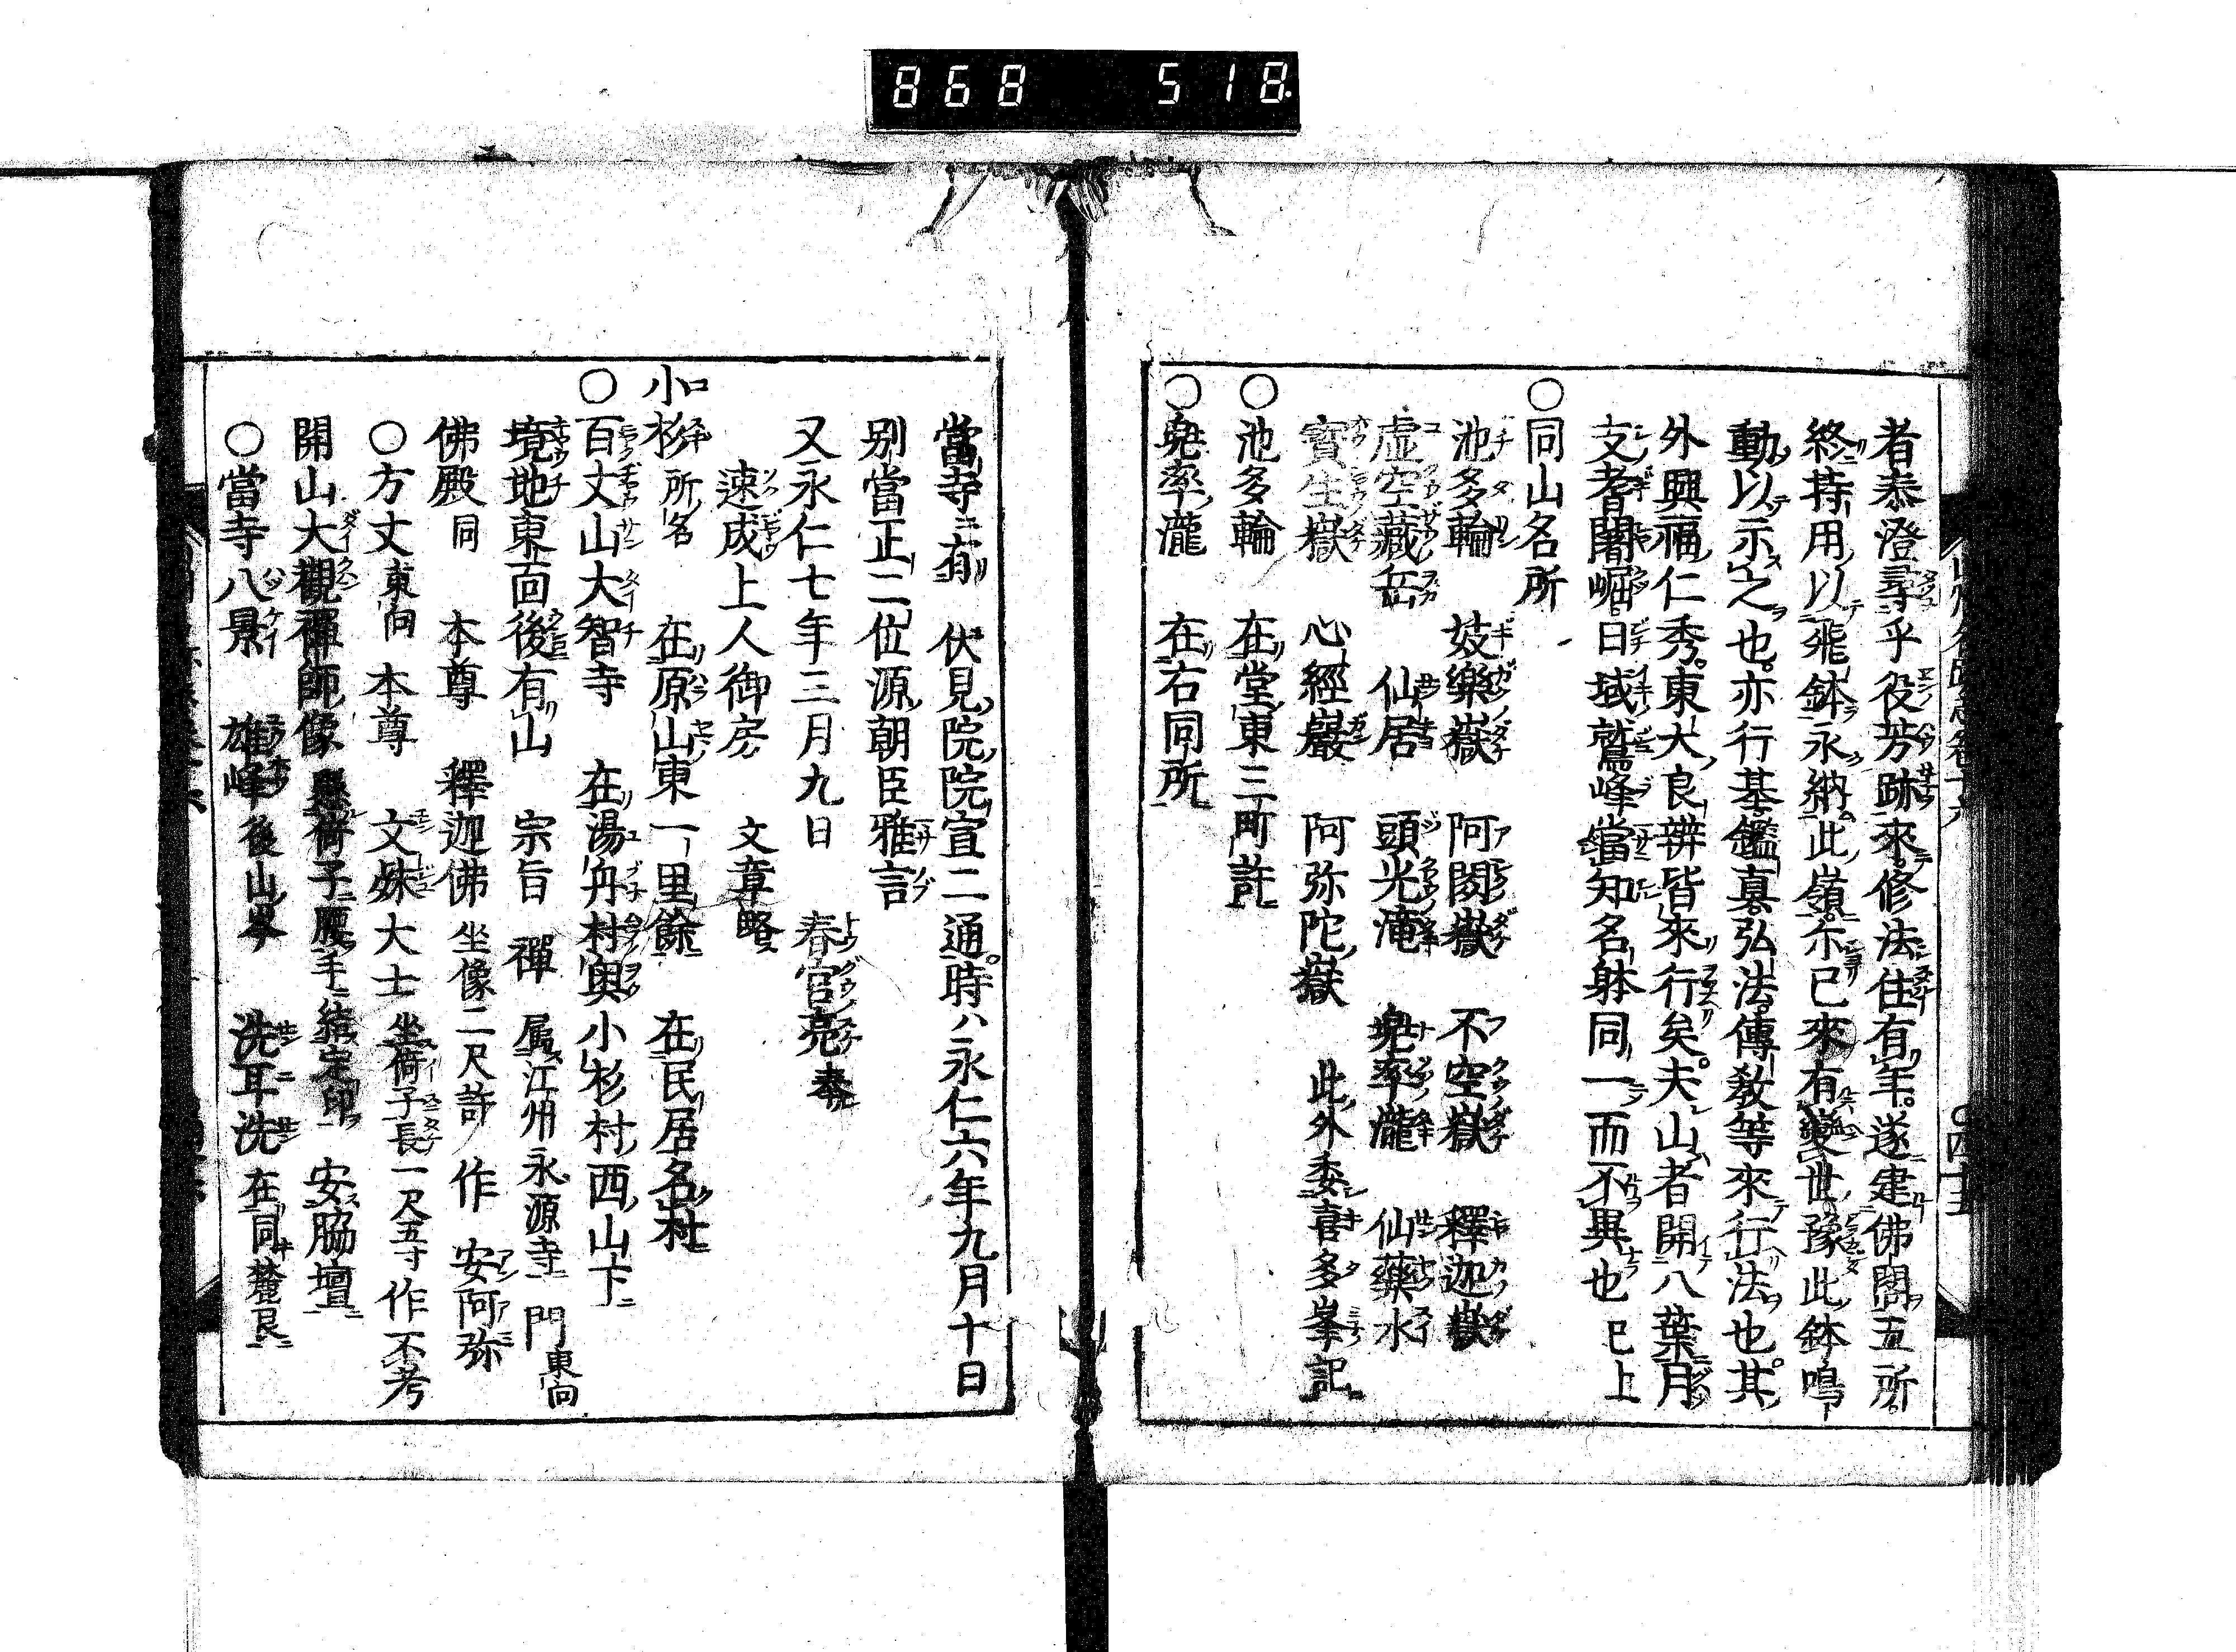 868 518
者泰澄尋乎役芳跡來修法住有年遂建佛閣五所
終持用以飛鉢永納此嶺尒已來有變世豫此鉢鳴
動以示之也亦行基鑑真弘法傳教等來行法也其
外興福仁秀東大良辨皆來行矣夫山者開八葉月
支耆闍崛日域鷲峰當知名躰同一而不異也 已上
○同山名所
池多輪 妓樂嶽 阿閦嶽 不空嶽 釋迦嶽
虚空藏岳 仙居 頭光滝 兜率瀧 仙藥水
寳生嶽 心經巖 阿弥陀嶽 此外委喜多峯記
○池多輪 在堂東三町許
○兜率瀧 在右同所
當寺ニ有 伏見院院宣二通時ハ永仁六年九月十日
別當正二位源朝臣雅言
又永仁七年三月九日 春宮亮奉
速成上人御房 文章略
小杉 所名 在原山東一里餘 在民居名村
○百丈山大智寺 在湯舟村與小杉村西山下
境地東面後有山 宗旨 禪 属江州永源寺 門東向
佛殿同 本尊 釋迦佛 坐像二尺許 作 安阿弥
○方丈東向 本尊 文殊大士 坐倚子長一尺五寸 作不考
開山大觀禪師像 懸倚子履手結定印 安脇壇
○當寺八景 雄峰後山峯 洗耳洗 在同麓艮